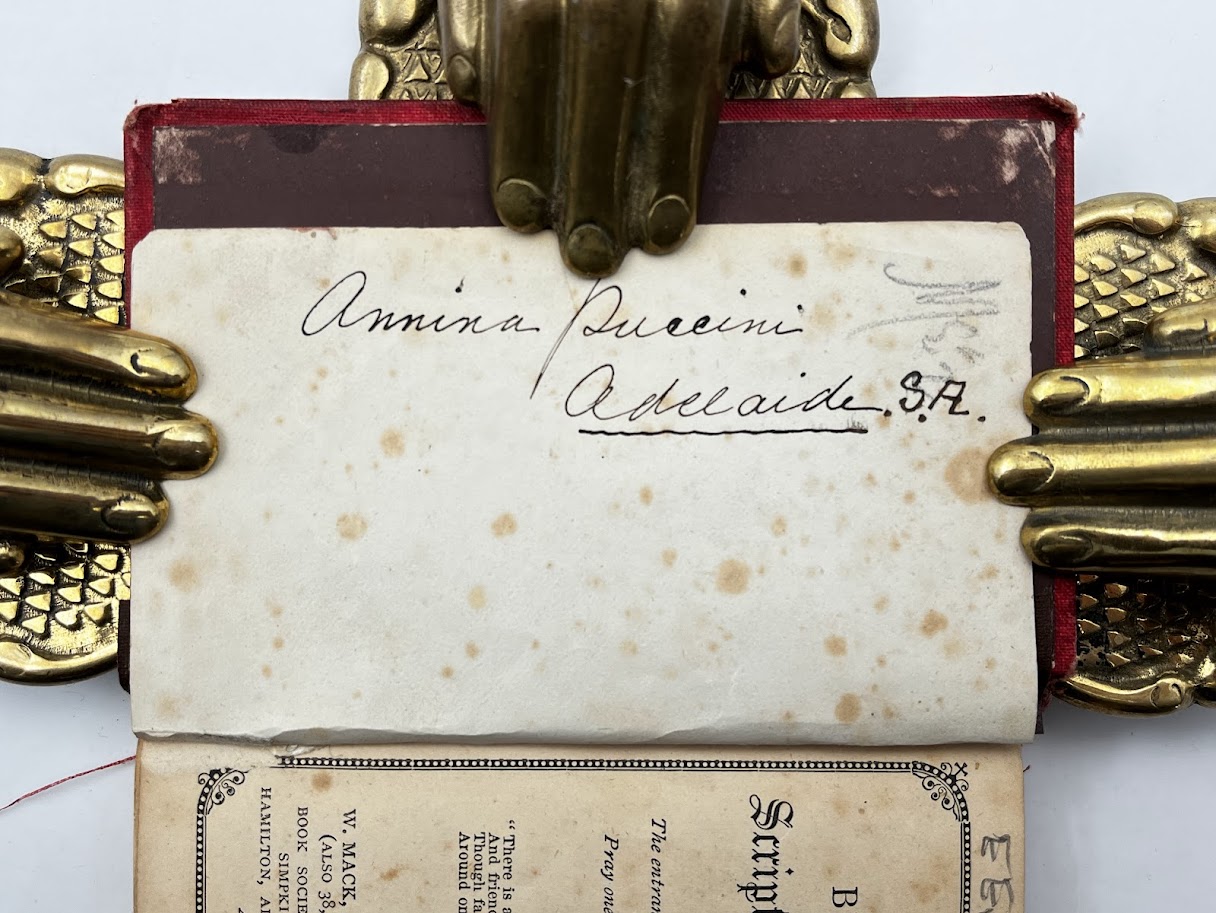 Annina Puccini
Adelaide. S.A.
Script
B
The entran
Pray one
"There is a
And friend
Though fa
Around on
W. MACK,
(ALSO 38,
BOOK SOCIE
SIMPKI
HAMILTON, A